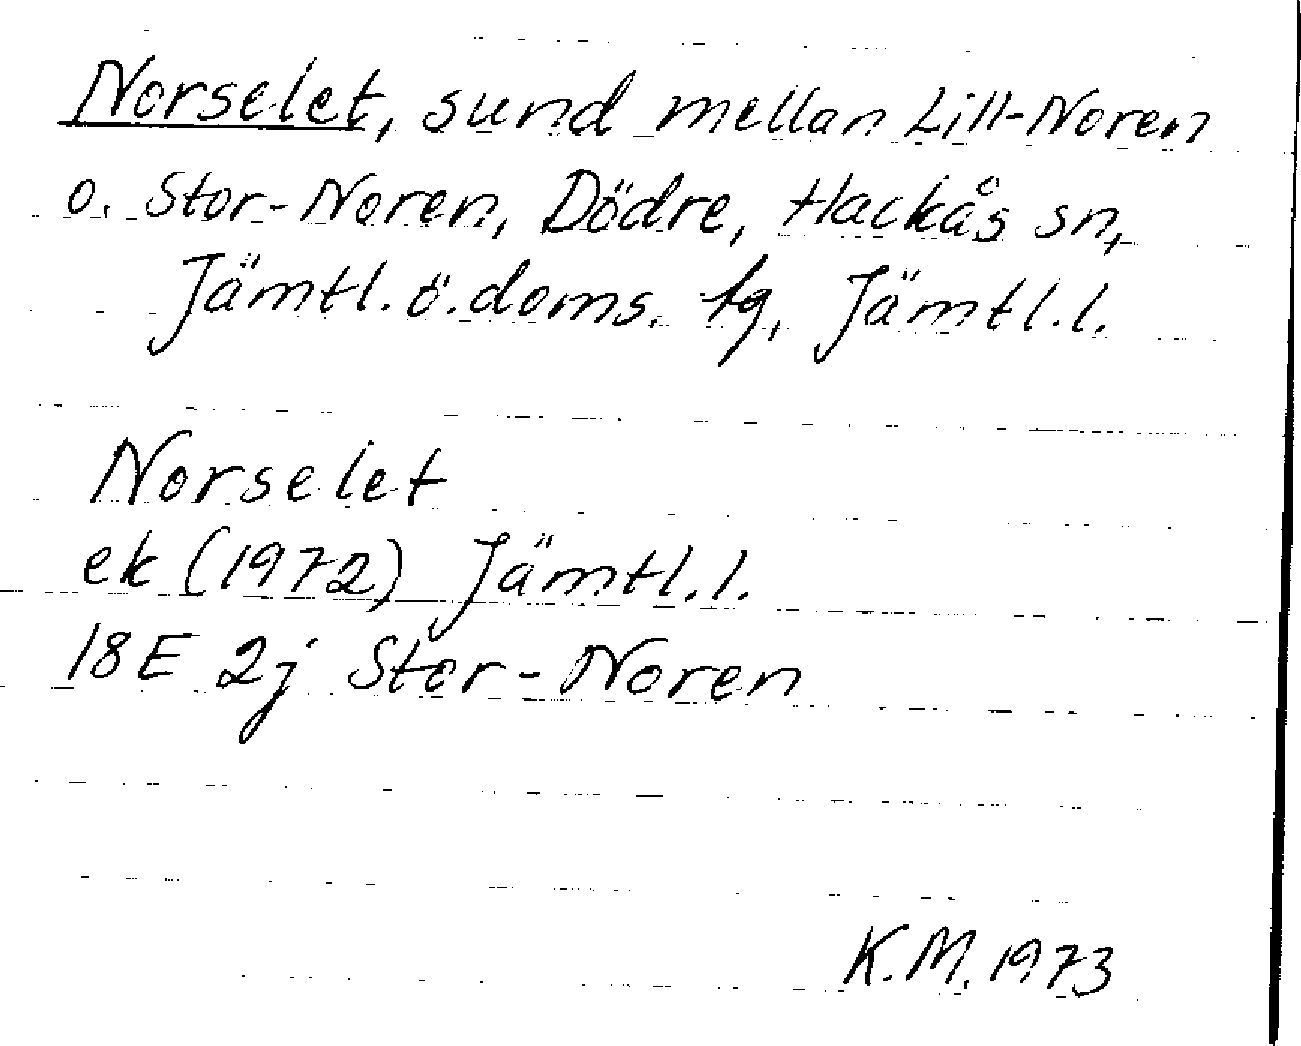 Norselet, sund mellan Lill-Noren
o. Stor-Noren, Dödre, Hackås sn,
Jämtl. ö. doms. tg, Jämtl. l.
Norselet
ek (1972) Jämtl. l.
18E 2j Stor-Noren
K.M. 1973